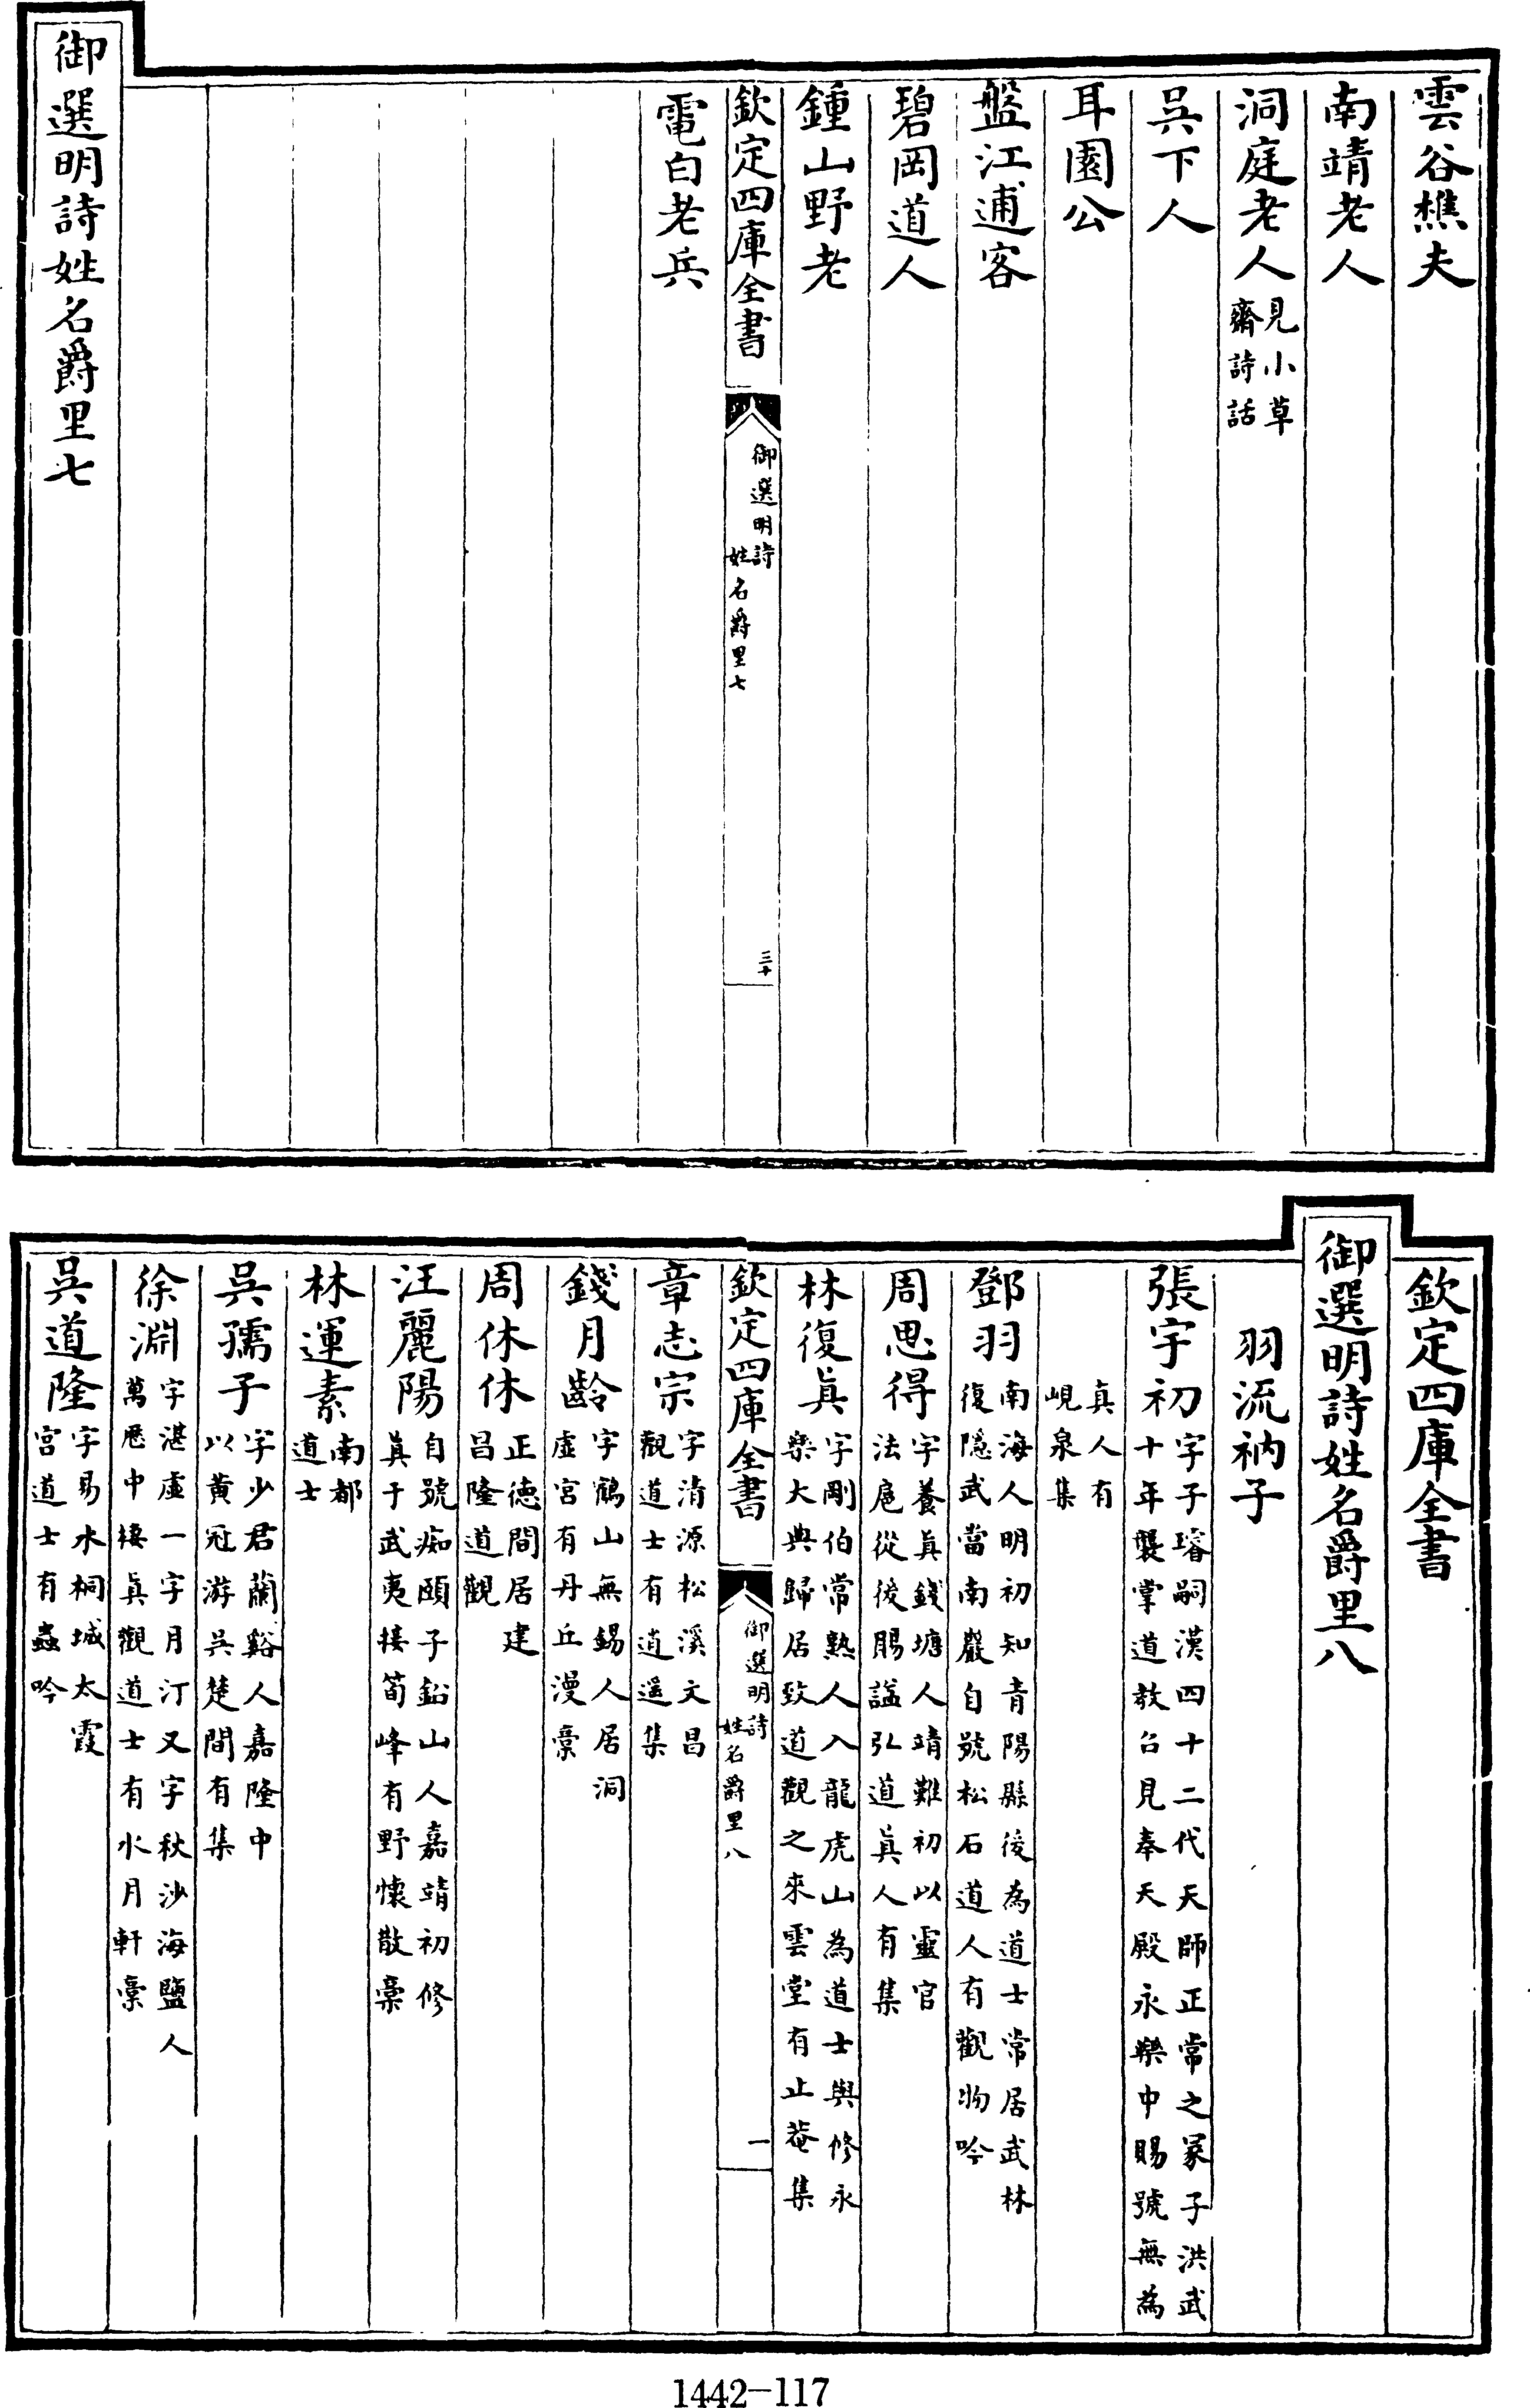 雲谷樵夫
南靖老人
洞庭老人見小草
齋詩話
吳下人
耳園公
盤江逋客
碧岡道人
鍾山野老
欽定四庫全書
御選明詩
姓名爵里七
三十
電白老兵
御選明詩姓名爵里七
欽定四庫全書
御選明詩姓名爵里八
羽流衲子
張宇初字子璿嗣漢四十二代天師正常之冡子洪武
十年襲掌道教召見奉天殿永樂中賜號無為
真人有
峴泉集
鄧羽南海人明初知青陽縣後為道士常居武林
復隱武當南巖自號松石道人有觀物吟
周思得字養眞錢塘人靖難初以靈官
法扈從後賜謚弘道眞人有集
林復眞字剛伯常熟人入龍虎山為道士與修永
樂大典歸居致道觀之來雲堂有止菴集
欽定四庫全書
御選明詩
姓名爵里八
一
章志宗字清源松溪文昌
觀道士有逍遥集
錢月齡字鶴山無錫人居洞
虛宮有丹丘漫稾
周休休正德間居建
昌隆道觀
汪麗陽自號痴頤子鉛山人嘉靖初修
眞于武夷接筍峰有野懷散稾
林運素南都
道士
吳孺子字少君蘭谿人嘉隆中
以黄冠游吳楚間有集
徐淵字湛虛一字月汀又字秋沙海鹽人
萬歷中棲眞觀道士有水月軒稾
吳道隆字易水桐城太霞
宮道士有蟲吟
1442-117